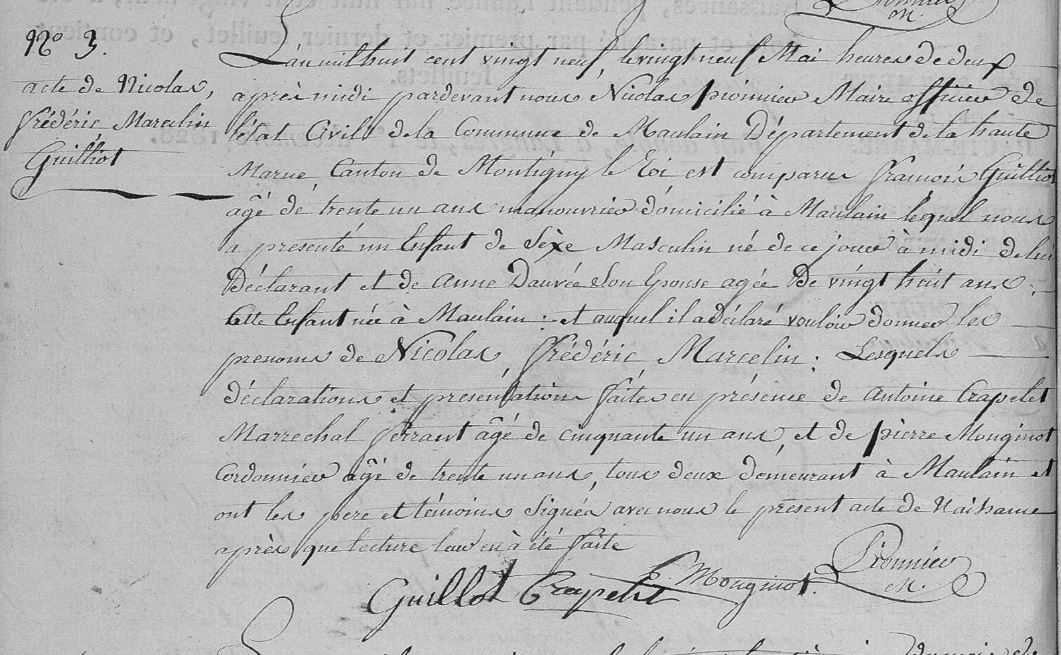 N.º 3.
acte de Nicolas,
frédéric Marcelin
Guilliot
L'an mil huit cent vingt neuf le vingt neuf Mai heures de deux
après midi pardevant nous Nicolas pionnier Maire officier de
l'état Civile de la Commune de Maulain Département de la haute
Marne Canton de Montigny le Roi est comparu framois Guilliot
agé de trente un ans manouvrier domicilié à Maulain lequel nous
a présenté un Enfant de Séxe Masculin né de ce jour à midi de lui
déclarant et de Anne Dauvée Son Epouse agée de vingt huit ans :
Cette Enfant née à Maulain : et auquel il a déclaré vouloir donner les
prenoms de Nicolas, frédéric Marcelin : Lesquels
déclarations et présentation faites en présence de Antoine Crapelet
Marrechal ferrant âgé de cinquante un ans, et de pierre Monginot
Cordonnier agé de trente un ans, tous deux démeurant à Maulain et
ont les pere et témoins Signés avec nous le présent acte de Naissance
après que lecture leur en à été faite
Guillot Crapelet Monginot. Pionnier
M.